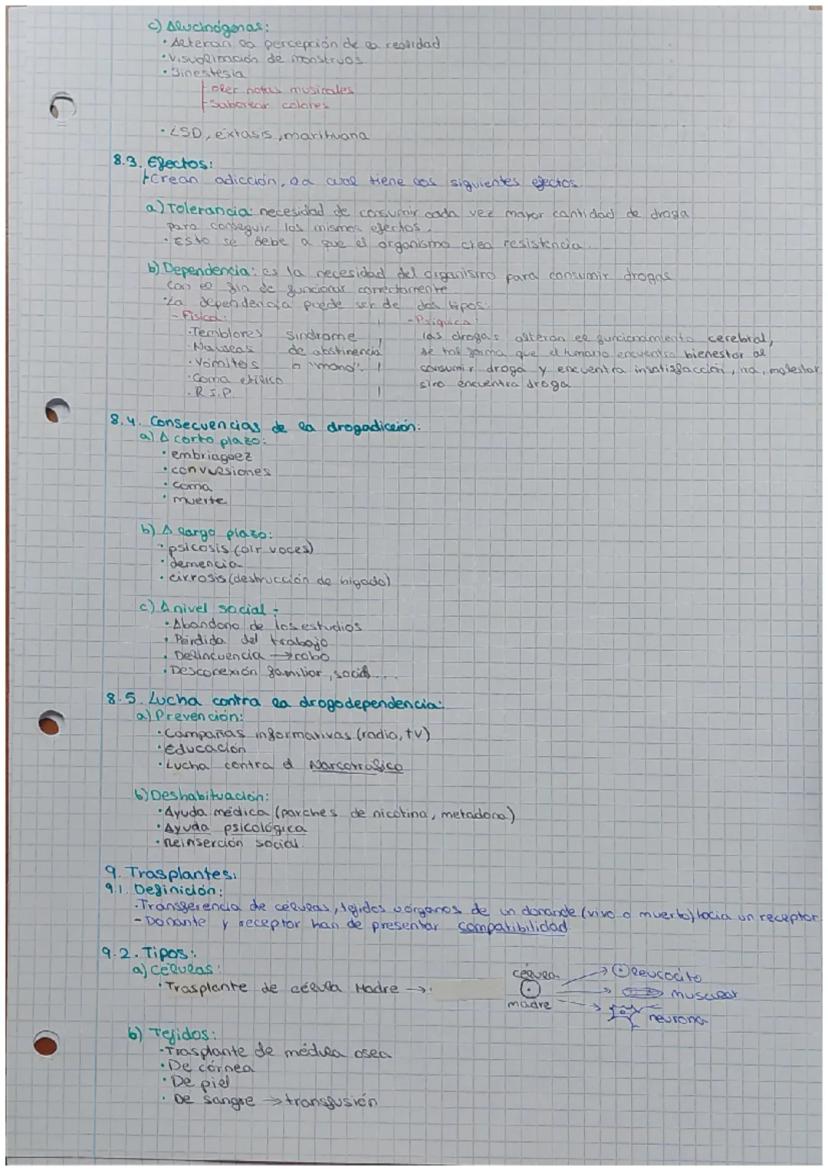 c) Alucinógenas:
· Alteran la percepción de la realidad
· Visualización de monstruos
· Sinestesia
oler notas musicales
Saborear colores
· LSD, éxtasis, marihuana
8.3. Efectos:
Crean adicción, la cual tiene los siguientes efectos
a) Tolerancia: necesidad de consumir cada vez mayor cantidad de droga
para conseguir los mismos efectos.
· Esto se debe a que el organismo crea resistencia.
b) Dependencia: es la necesidad del organismo para consumir drogas
con el fin de funcionar correctamente
· La dependencia puede ser de dos tipos:
- Física: - Psíquica:
· Temblores síndrome las drogas alteran el funcionamiento cerebral,
· Nauseas de abstinencia de tal forma que el humano encuentra bienestar al
· Vómitos o "mono". consumir droga y encuentra insatisfacción, ira, malestar
· Coma etílico sino encuentra droga
· R.I.P.
8.4. Consecuencias de la drogadicción:
a) A corto plazo:
· embriaguez
· convulsiones
· coma
· muerte
b) A largo plazo:
· psicosis (oir voces)
· demencia
· cirrosis (destrucción de higado)
c) A nivel social:
· Abandono de los estudios
· Pérdida del trabajo
· Delincuencia → robo
· Desconexión familiar, social...
8.5. Lucha contra la drogodependencia:
a) Prevención:
· Campañas informativas (radio, tv)
· educación
· Lucha contra el Narcotráfico
b) Deshabituación:
· Ayuda médica (parches de nicotina, metadona)
· Ayuda psicológica
· Reinserción social
9. Trasplantes.
9.1. Definición:
· Transferencia de células, tejidos u órganos de un donande (vivo o muerto) hacia un receptor
- Donante y receptor han de presentar compatibilidad
9.2. Tipos:
a) Células:
· Trasplante de célula Madre →
célula madre
leucocito
muscular
neurona
b) Tejidos:
· Trasplante de médula osea
· De córnea
· De piel
· De sangre → transfusión